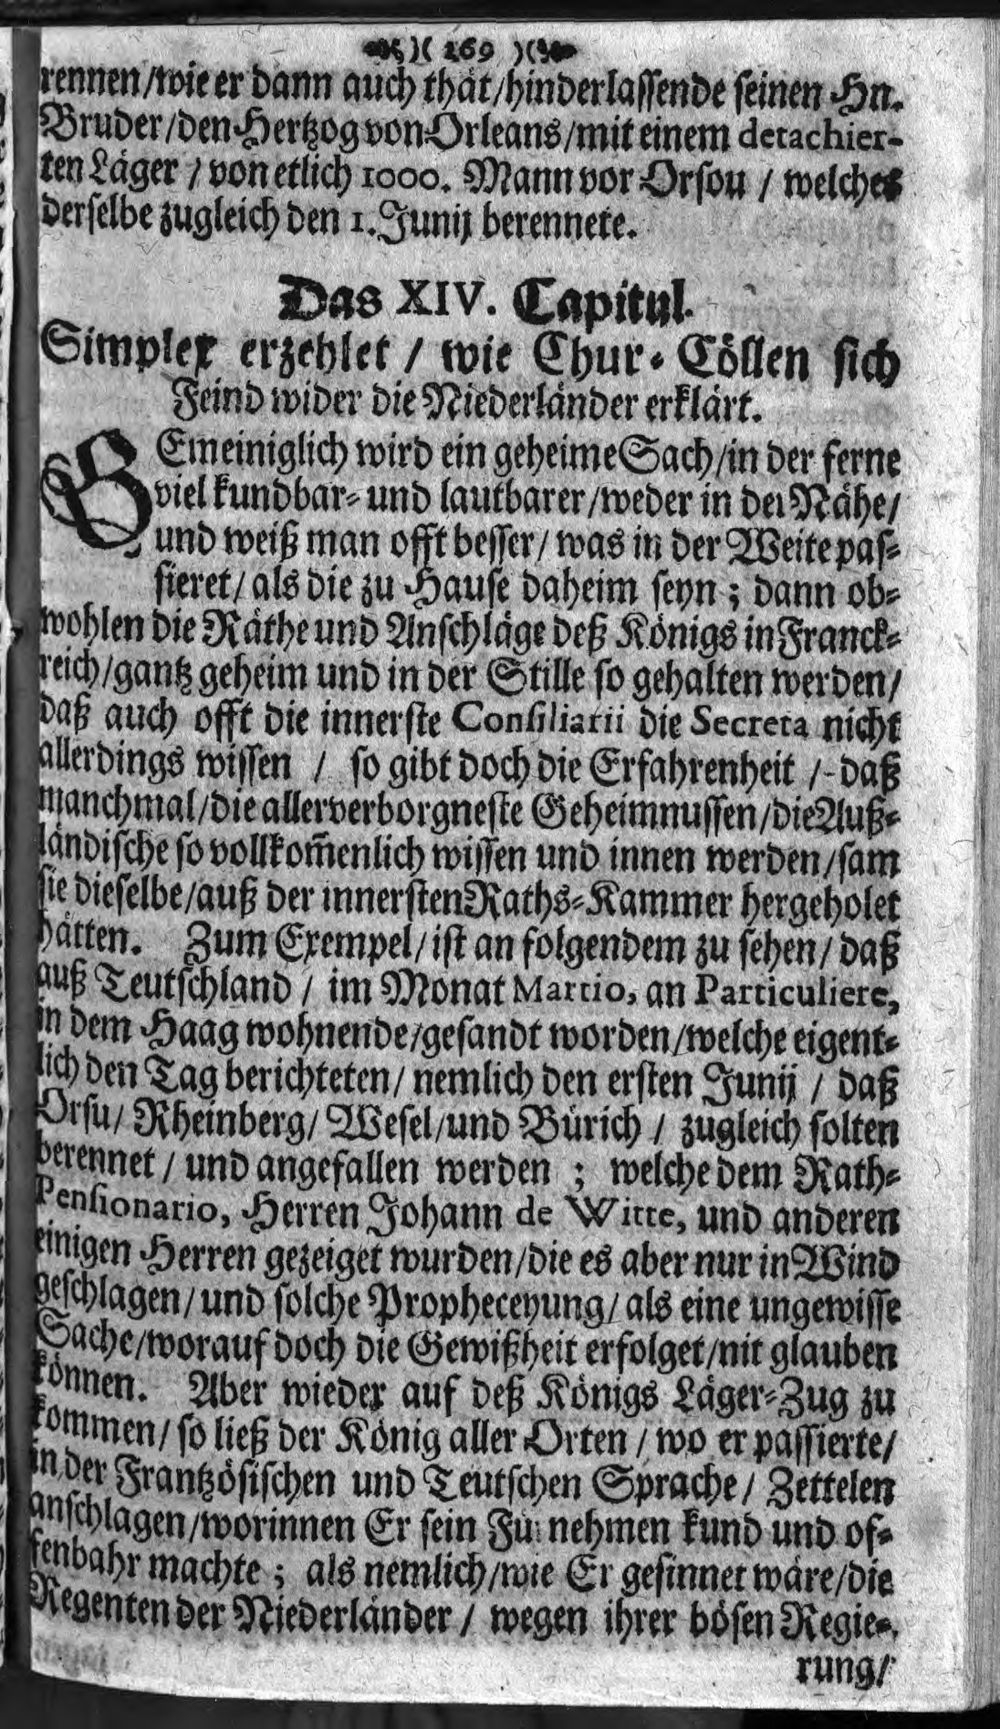 )( 269 )(
rennen/wie er dann auch thät/hinderlassende seinen Hn.
Bruder/den Hertzog von Orleans/mit einem detachier-
ten Läger / von etlich 1000. Mann vor Orsou / welches
derselbe zugleich den 1. Junij berennete.
Das XIV. Capitul.
Simplex erzehlet / wie Chur-Cöllen sich
Feind wider die Niederländer erklärt.
GEmeiniglich wird ein geheime Sach/in der ferne
viel kundbar- und lautbarer/weder in der Nähe/
und weiß man offt besser/ was in der Weite pas-
sieret/ als die zu Hause daheim seyn; dann ob-
wohlen die Räthe und Anschläge deß Königs in Franck-
reich/gantz geheim und in der Stille so gehalten werden/
daß auch offt die innerste Consiliarii die Secreta nicht
allerdings wissen / so gibt doch die Erfahrenheit /-daß
manchmal/die allerverborgneste Geheimnussen/die Auß-
ländische so vollkom̃enlich wissen und innen werden/sam
sie dieselbe/auß der innersten Raths-Kammer hergeholet
hätten. Zum Exempel/ist an folgendem zu sehen/ daß
auß Teutschland / im Monat Martio, an Particuliere,
in dem Haag wohnende/gesandt worden/welche eigent-
lich den Tag berichteten/ nemlich den ersten Junij / daß
Orsu/ Rheinberg/ Wesel/und Bürich / zugleich solten
berennet / und angefallen werden ; welche dem Rath-
Pensionario, Herren Johann de Witte, und anderen
einigen Herren gezeiget wurden/die es aber nur in Wind
geschlagen/und solche Propheceyung/als eine ungewisse
Sache/worauf doch die Gewißheit erfolget/nit glauben
können. Aber wieder auf deß Königs Läger-Zug zu
kommen/ so ließ der König aller Orten / wo er passierte/
in der Frantzösischen und Teutschen Sprache/ Zettelen
anschlagen/worinnen Er sein Fürnehmen kund und of-
fenbahr machte ; als nemlich/wie Er gesinnet wäre/die
Regenten der Niederländer / wegen ihrer bösen Regie-
rung/